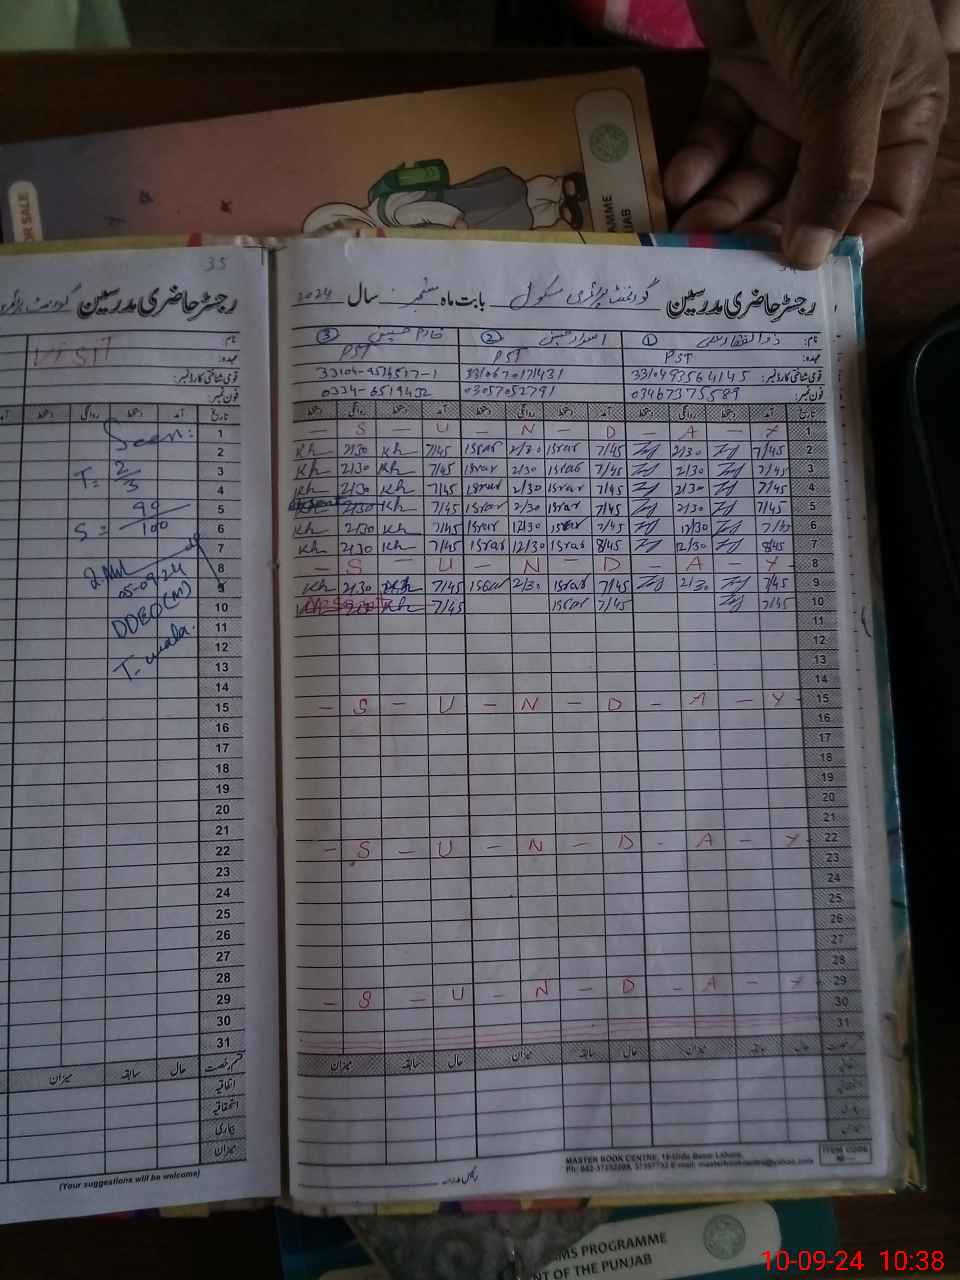 FOR SALE
AMME
JAB
35
رجسٹر حاضری مدرسین
VISIT
نام:
عہدہ:
قومی شناختی کارڈ نمبر:
فون نمبر:
تاریخ آمد دستخط روانگی دستخط آمد
Seen:
T = 2/3
S = 99/100
05-09-24
DDEO(M)
T-wala.
1
2
3
4
5
6
7
8
9
10
11
12
13
14
15
16
17
18
19
20
21
22
23
24
25
26
27
28
29
30
31
قسم رخصت حال سابقہ میزان
اتفاقیہ
استحقاقیہ
بیماری
میزان
(Your suggestions will be welcome)
رجسٹر حاضری مدرسین گورنمنٹ پرائمری سکول بابت ماہ ستمبر سال 2024
نام: 1 ذوالفقار علی 2 اسرار حسین 3 خادم حسین
عہدہ: PST PST PST
قومی شناختی کارڈ نمبر:
فون نمبر: 03467375589 03057052791
تاریخ آمد دستخط روانگی دستخط آمد دستخط روانگی دستخط آمد دستخط روانگی دستخط
- S - U - N - D - A - Y 1
Kh 2/30 Kh 7/45 Israr 2/30 Israr 7/45 2/30 7/45 2
Kh 2/30 Kh 7/45 Israr 2/30 Israr 7/45 2/30 7/45 3
Kh 2/30 Kh 7/45 Israr 2/30 Israr 7/45 2/30 7/45 4
2/30 Kh 7/45 Israr 2/30 Israr 7/45 2/30 7/45 5
Kh 2/30 Kh 7/45 Israr 12/30 Israr 7/45 12/30 6
Kh 2/30 Kh 7/45 Israr 12/30 Israr 8/45 12/30 8/45 7
- S - U - N - D - A - Y 8
Kh 2/30 7/45 Israr 2/30 Israr 7/45 2/30 7/45 9
Kh 7/45 Israr 7/45 7/45 10
11
12
13
14
- S - U - N - D - A - Y 15
16
17
18
19
20
21
- S - U - N - D - A - Y 22
23
24
25
26
27
28
- S - U - N - D - A - Y 29
30
31
حال سابقہ میزان حال سابقہ میزان حال سابقہ میزان
رئیس مدرسہ
MASTER BOOK CENTRE, 19-Urdu Bazar Lahore.
ITEM CODE
MS PROGRAMME
NT OF THE PUNJAB
10-09-24 10:38